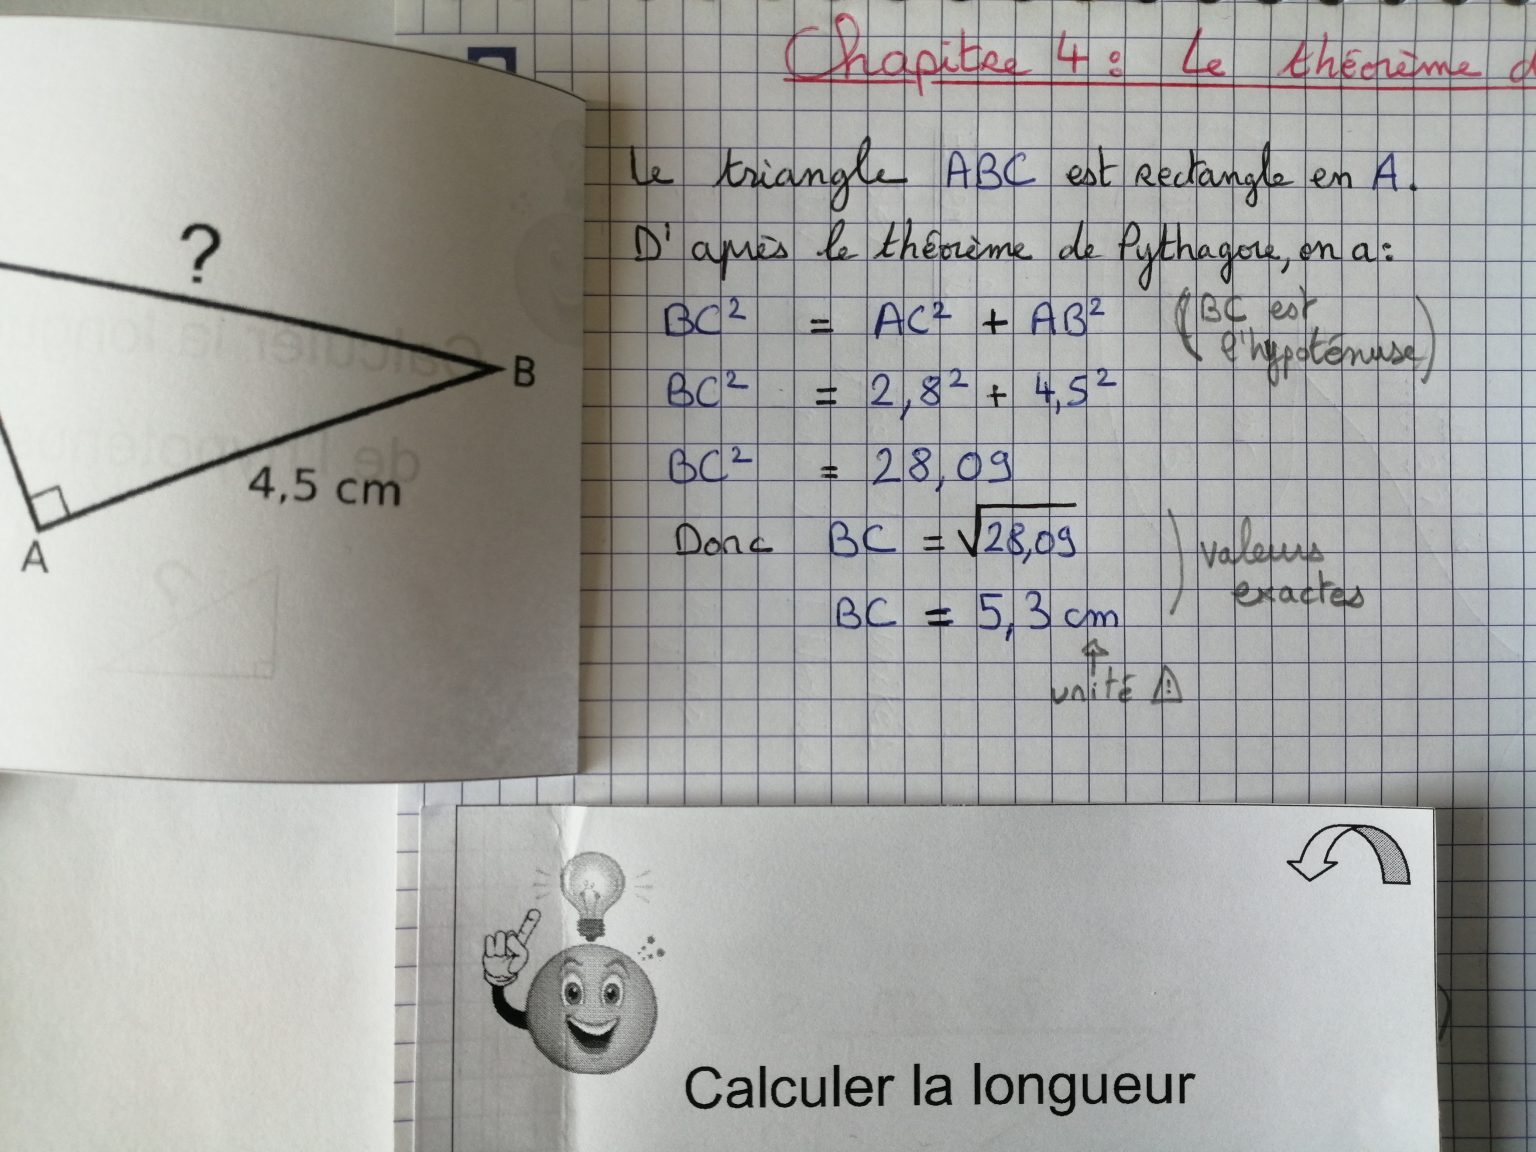 Chapitre 4 : Le théorème d
?
B
4,5 cm
A
Le triangle ABC est rectangle en A.
D'après le théorème de Pythagore, on a :
BC² = AC² + AB²
(BC est
l'hypoténuse)
BC² = 2,8² + 4,5²
BC² = 28,09
Donc BC = √28,09
BC = 5,3 cm
) valeurs
exactes
unité ⚠
Calculer la longueur